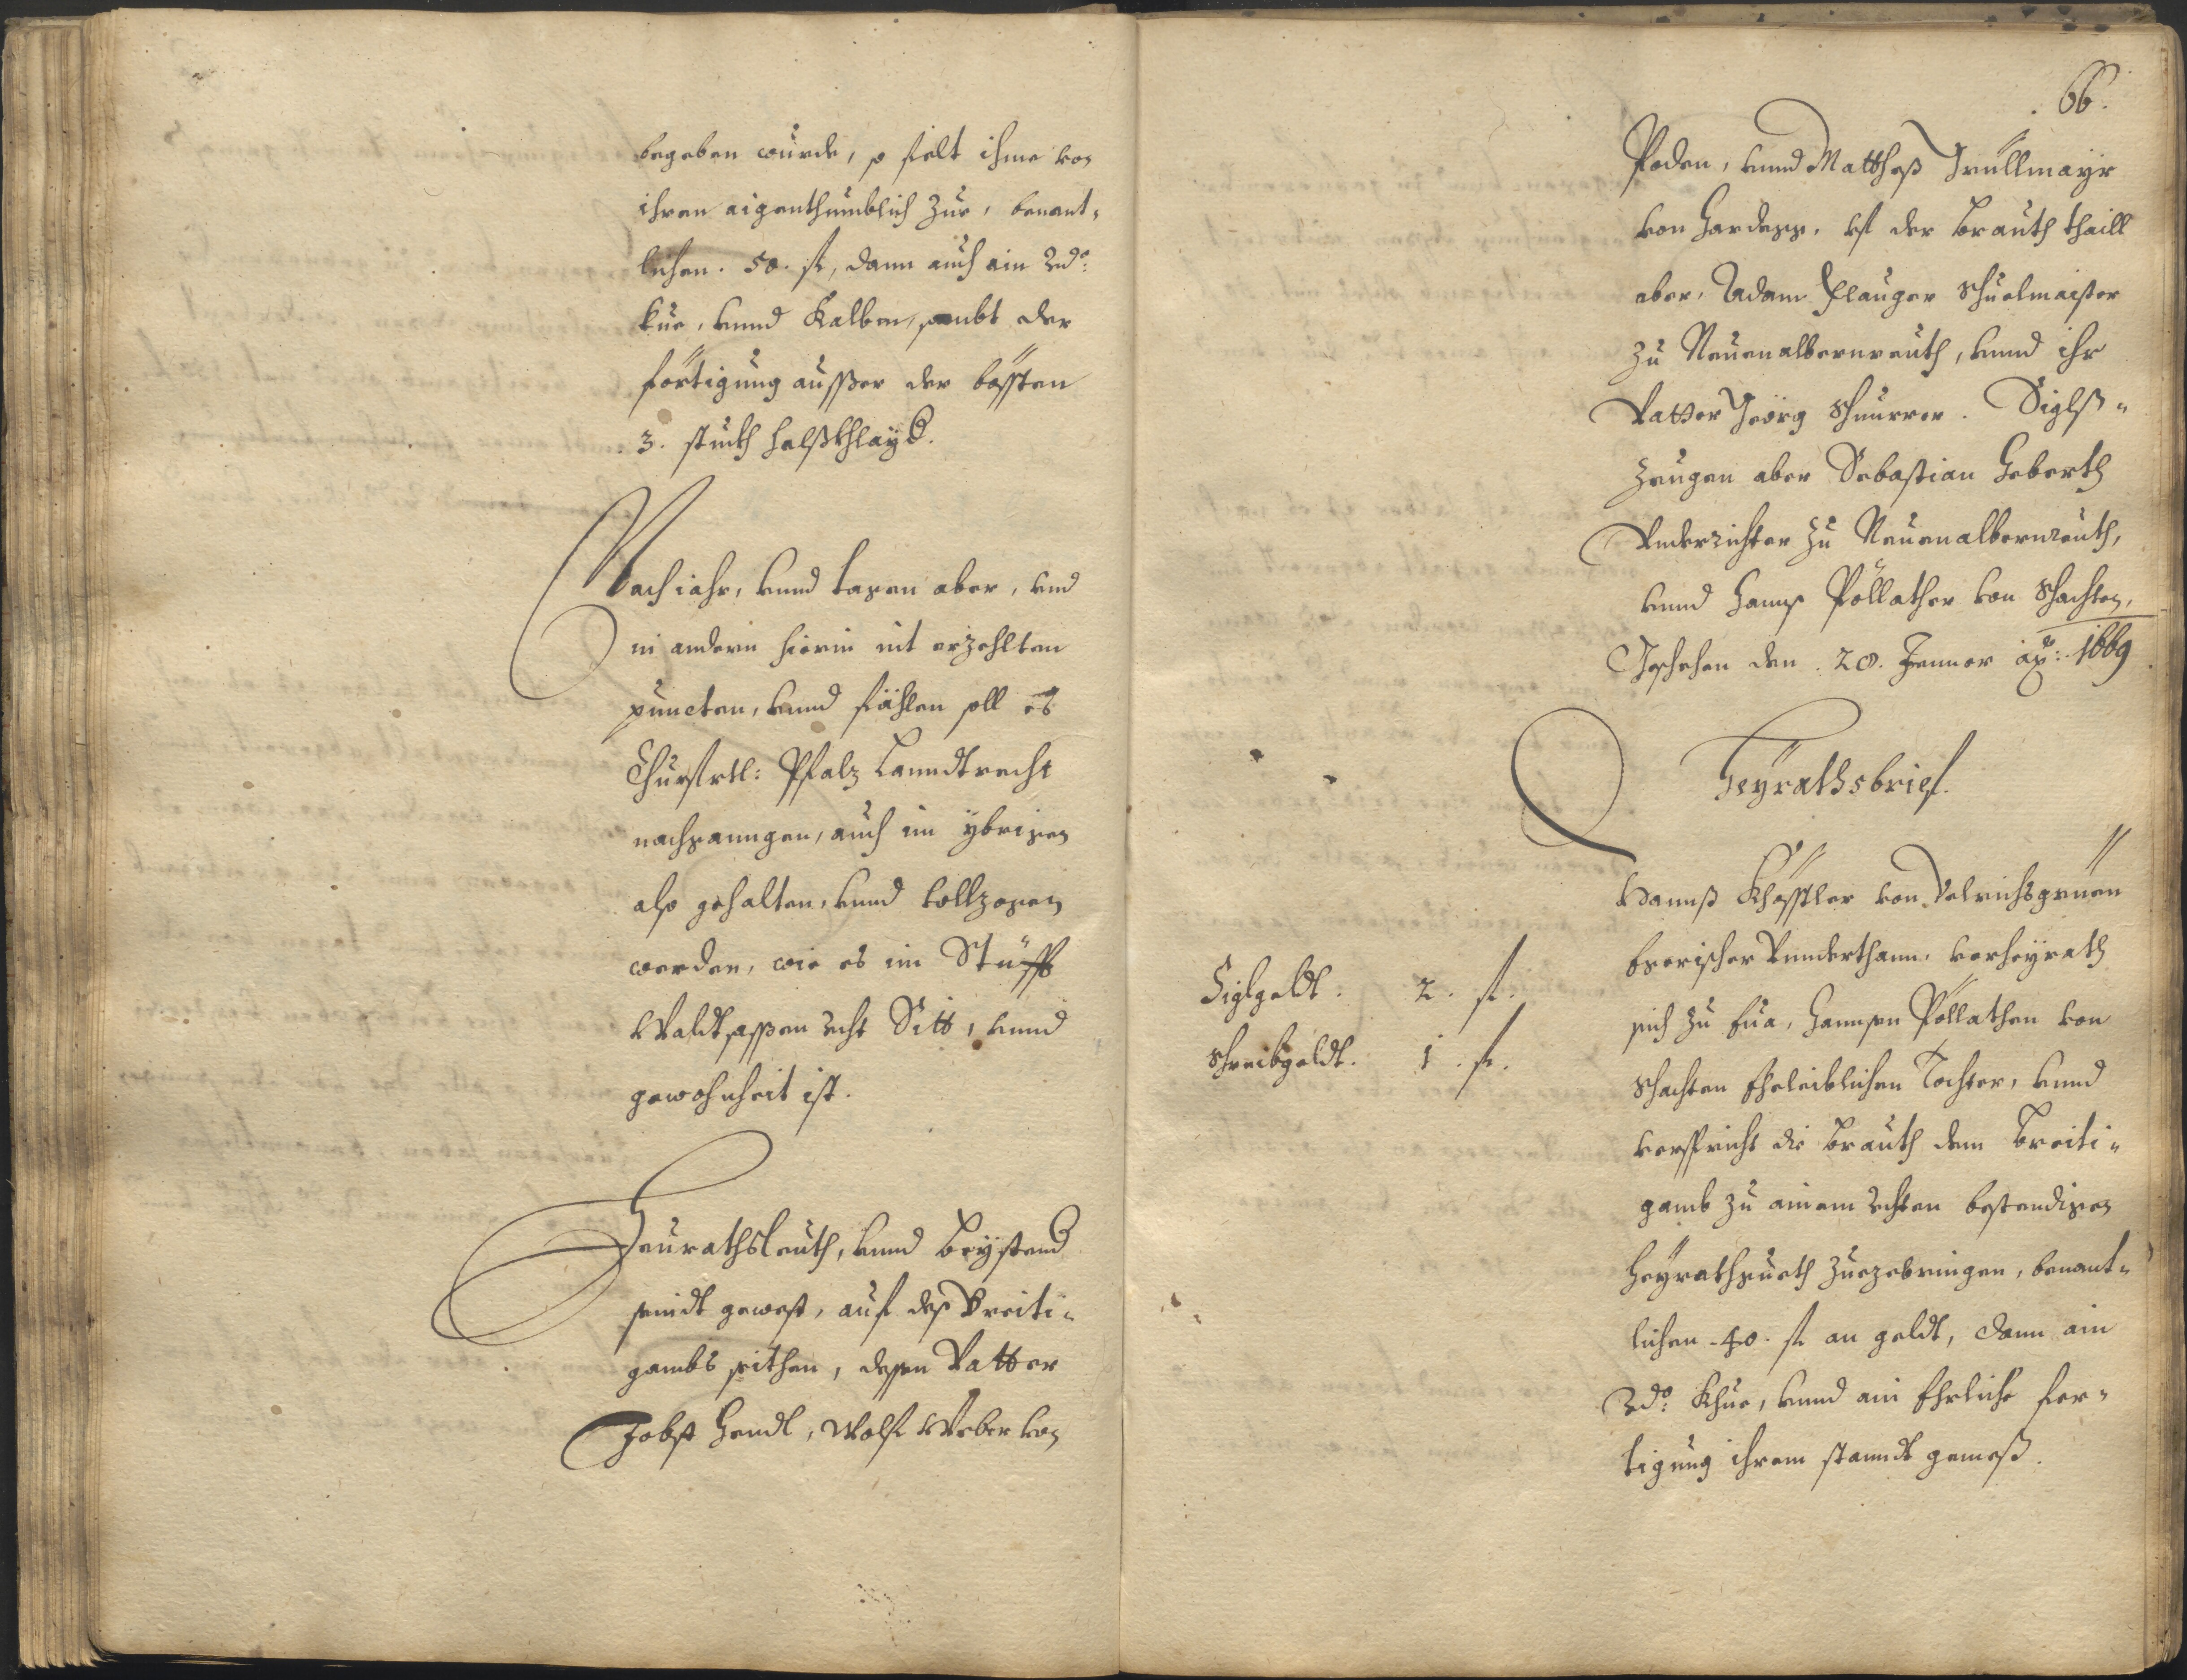 begeben wurde, so fielt ihme von
ihren aigenthumblich zue, benant-
lichen. 50. fl, dann auch ein 2do:
kue, vnnd Kalben, sambt der
förtigung ausser der bössten
3. stuckh halßkhlayd.
Nach iahr, vnnd tagen aber, vnd
in andern hierin nit erzehlten
puncten, vnnd fählen soll es
Churfrtl: Pfalz Lanndtrecht
nachganngen, auch im ybrigen
also gehalten, vnnd vollzogen
werden, wie es im Stüfft
Waldtsassen recht Sitt, vnnd
gewohnheit ist.
Heurathsleuth, vnnd Beystend
seindt gewest, auf deß Breiti-
gambs seithen, dessen Vatter
Jobst Hendl, Wolf Weber von
66.
Poden, vnnd Mattheß Trüllmayr
von Hardegg, vf der Brauth thaill
aber, Adam Plauger Schuelmaister
zu Neuenalbernreuth, vnnd ihr
Vatter Geörg Schnurrer. Siglß-
zeugen aber Sebastian Geberth
Vnderrichter zu Neuenalbernreuth,
vnnd Hannß Pöllather von Schachten,
Geschehen den 28. Jenner ao: 1669
Heyrathsbrief.
Hannß Khösstler von Vlrichsgrüen
Egerischer Vnnderthann, verheyrath
sich zu Eua, Hannsen Pöllathen von
Schachten Eheleiblichen Tochter, vnnd
Siglgeldt. 2. fl.
Schreibgeldt. 1. fl.
verspricht die Brauth dem Breiti-
gamb zu ainem rechten bestendigen
Heyrathgueth zuezebringen, benant-
lichen 40. fl an geldt, dann ain
2do: Khue, vnnd ain Ehrliche fer-
tigung ihrem standt gemeß.